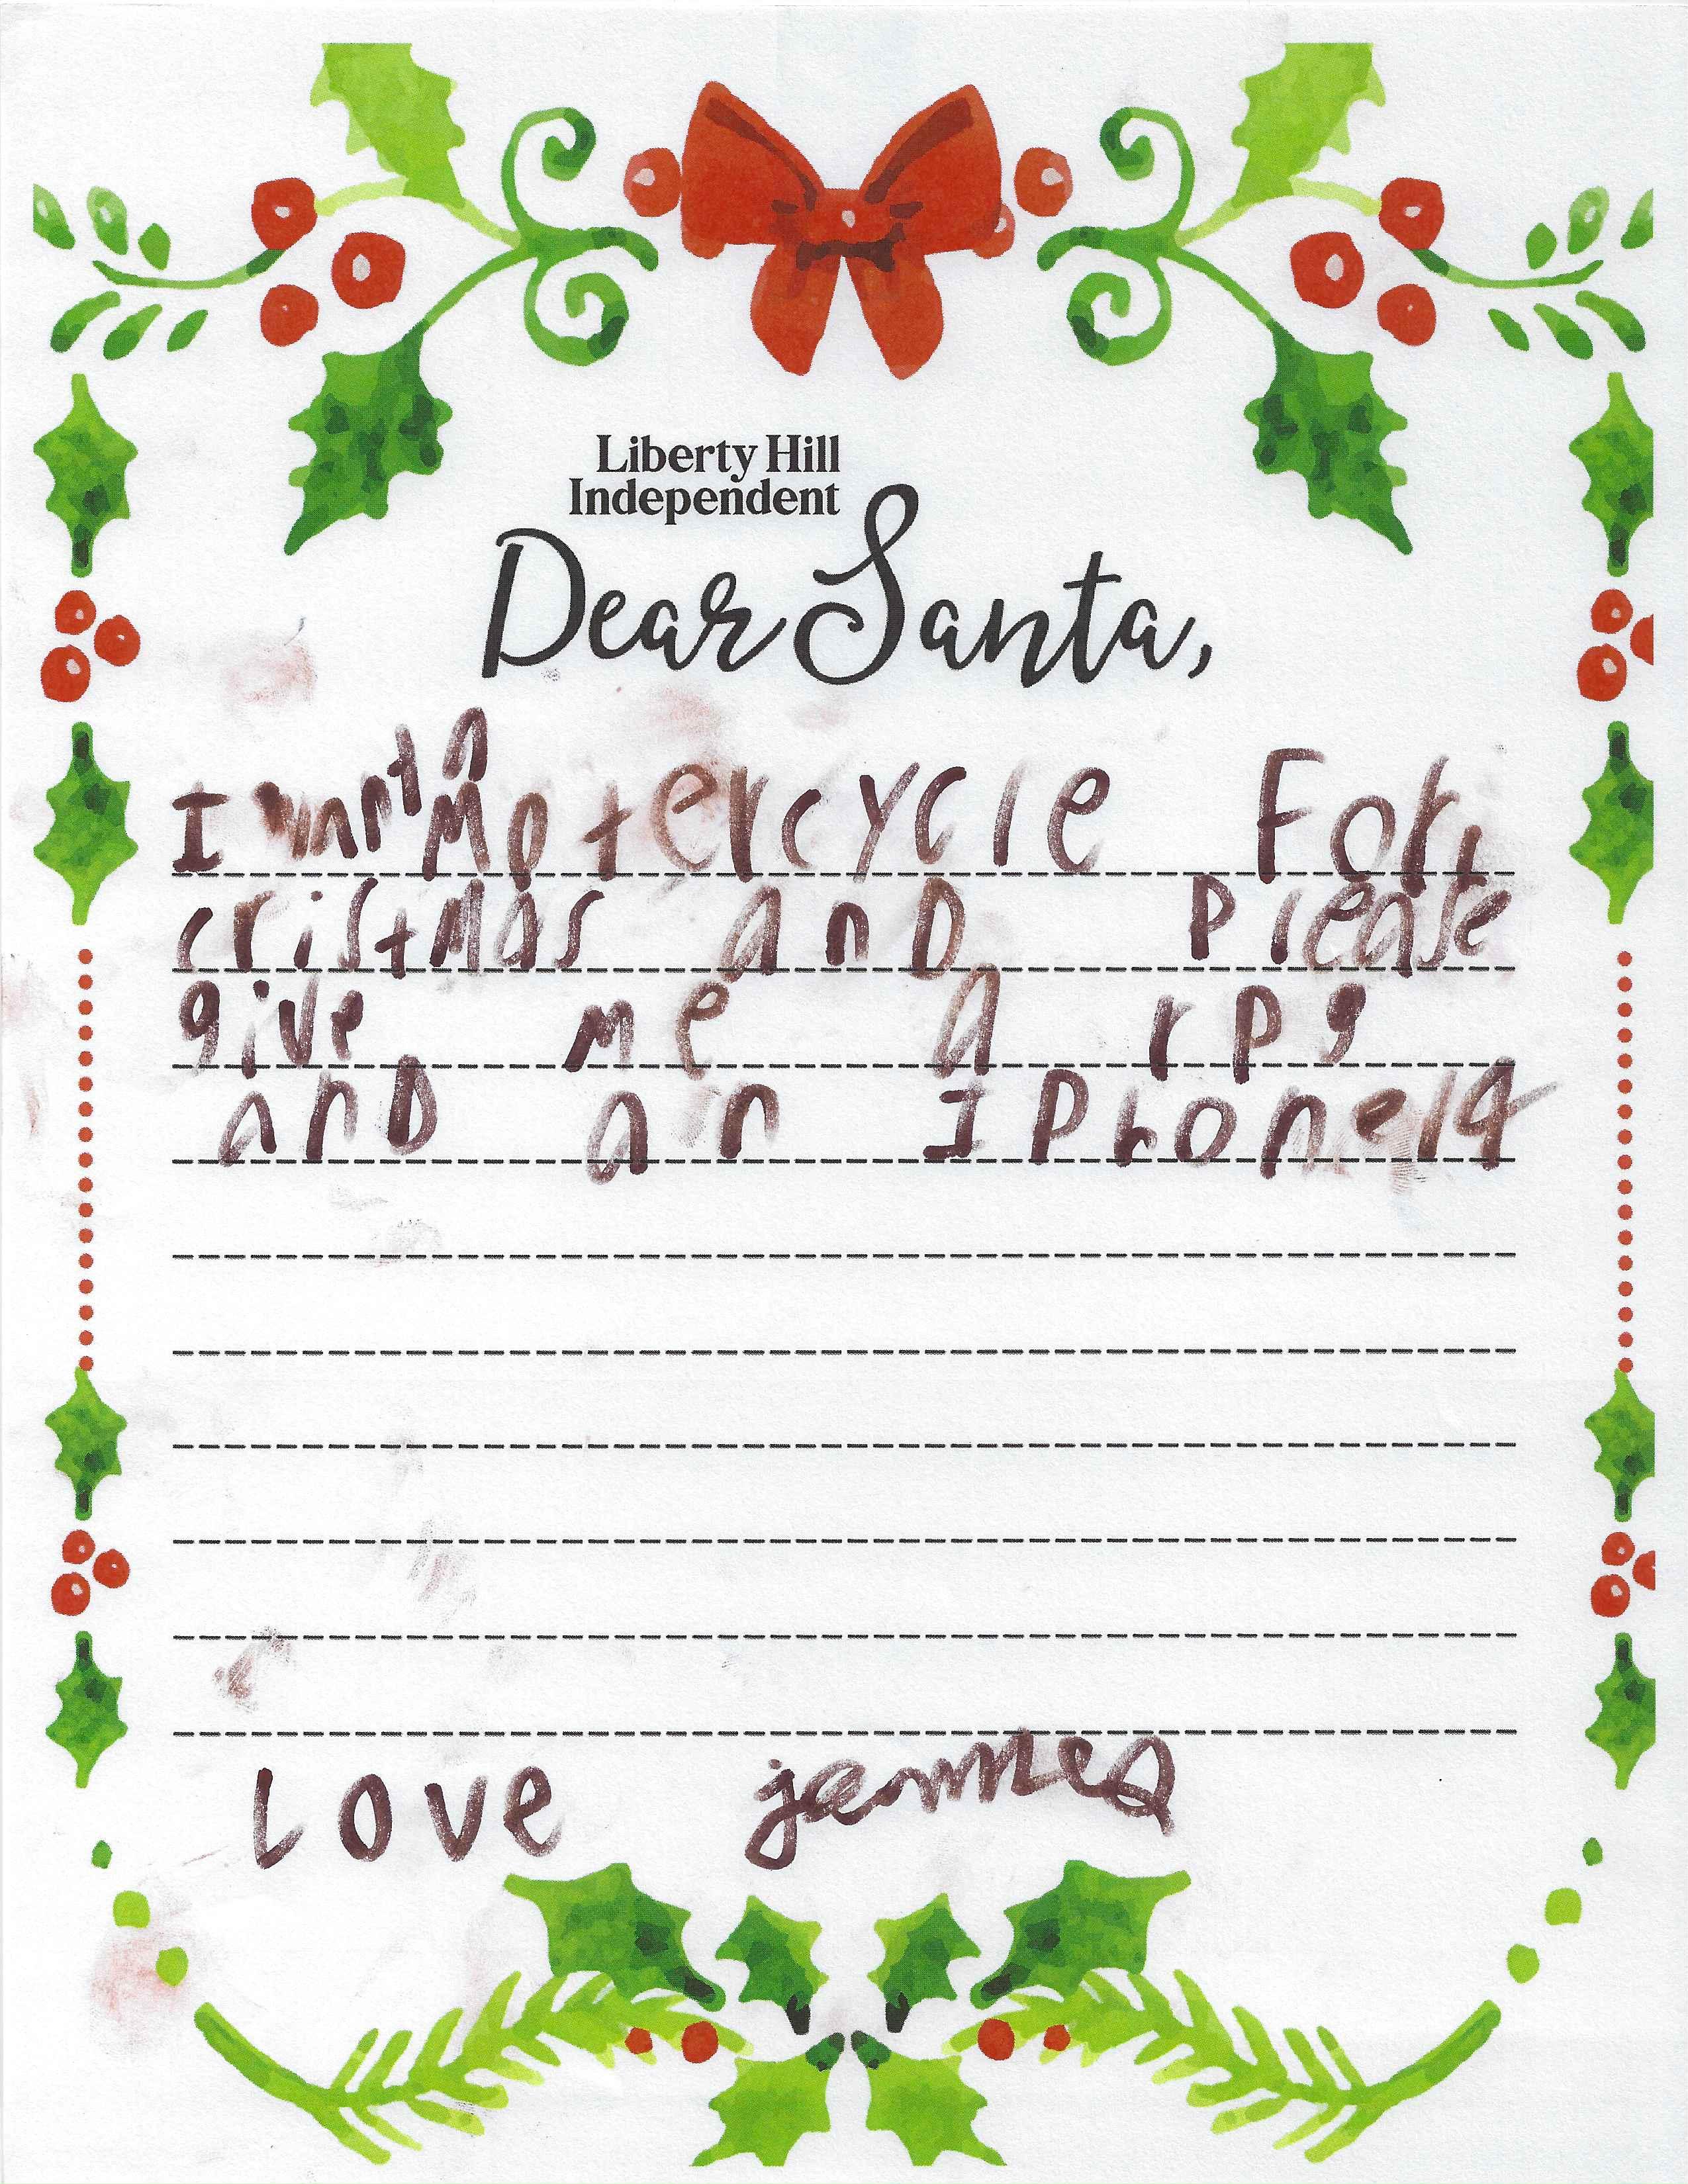 Liberty Hill
Independent
Dear Santa,
I want a
Motercycle For
cristmas anD Please
give me a rpg
anD an IPhone14
Love james